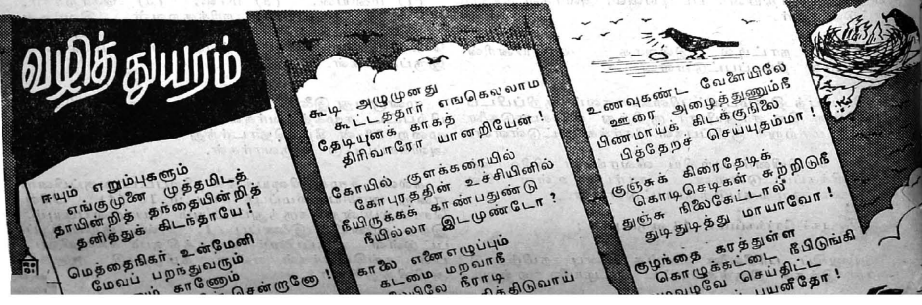 வழித் துயரம்
ஈயும் எறும்புகளும்
எங்குமுனை முத்தமிடத்
தாயின்றித் தந்தையின்றித்
தனித்துக் கிடந்தாயே !
மெத்தைநிகர் உன்மேனி
மேவப் பறந்துவரும்
காணோம்
சென்றனோ !
கூடி அழுமுனது
கூட்டத்தார் எங்கெல்லாம
தேடியுனக் காகத்
திரிவாரோ யானறியேன் !
கோயில் குளக்கரையில்
கோபுரத்தின் உச்சியினில்
நீயிருக்கக் காண்பதுண்டு
நீயில்லா இடமுண்டோ ?
காலை எனைஎழுப்பும்
கடமை மறவாநீ
நீராடி
உணவுகண்ட வேளையிலே
ஊரை அழைத்துணும்நீ
பிணமாய்க் கிடக்குநிலை
பித்தேறச் செய்யுதம்மா !
குஞ்சுக் கிரைதேடிக்
கொடிசெடிகள் சுற்றிடுநீ
துஞ்சு நிலைகேட்டால்
துடிதுடித்து மாயாவோ !
குழந்தை கரத்துள்ள
கொழுக்கட்டை நீபிடுங்கி
செய்திட்ட
பயனீதோ !